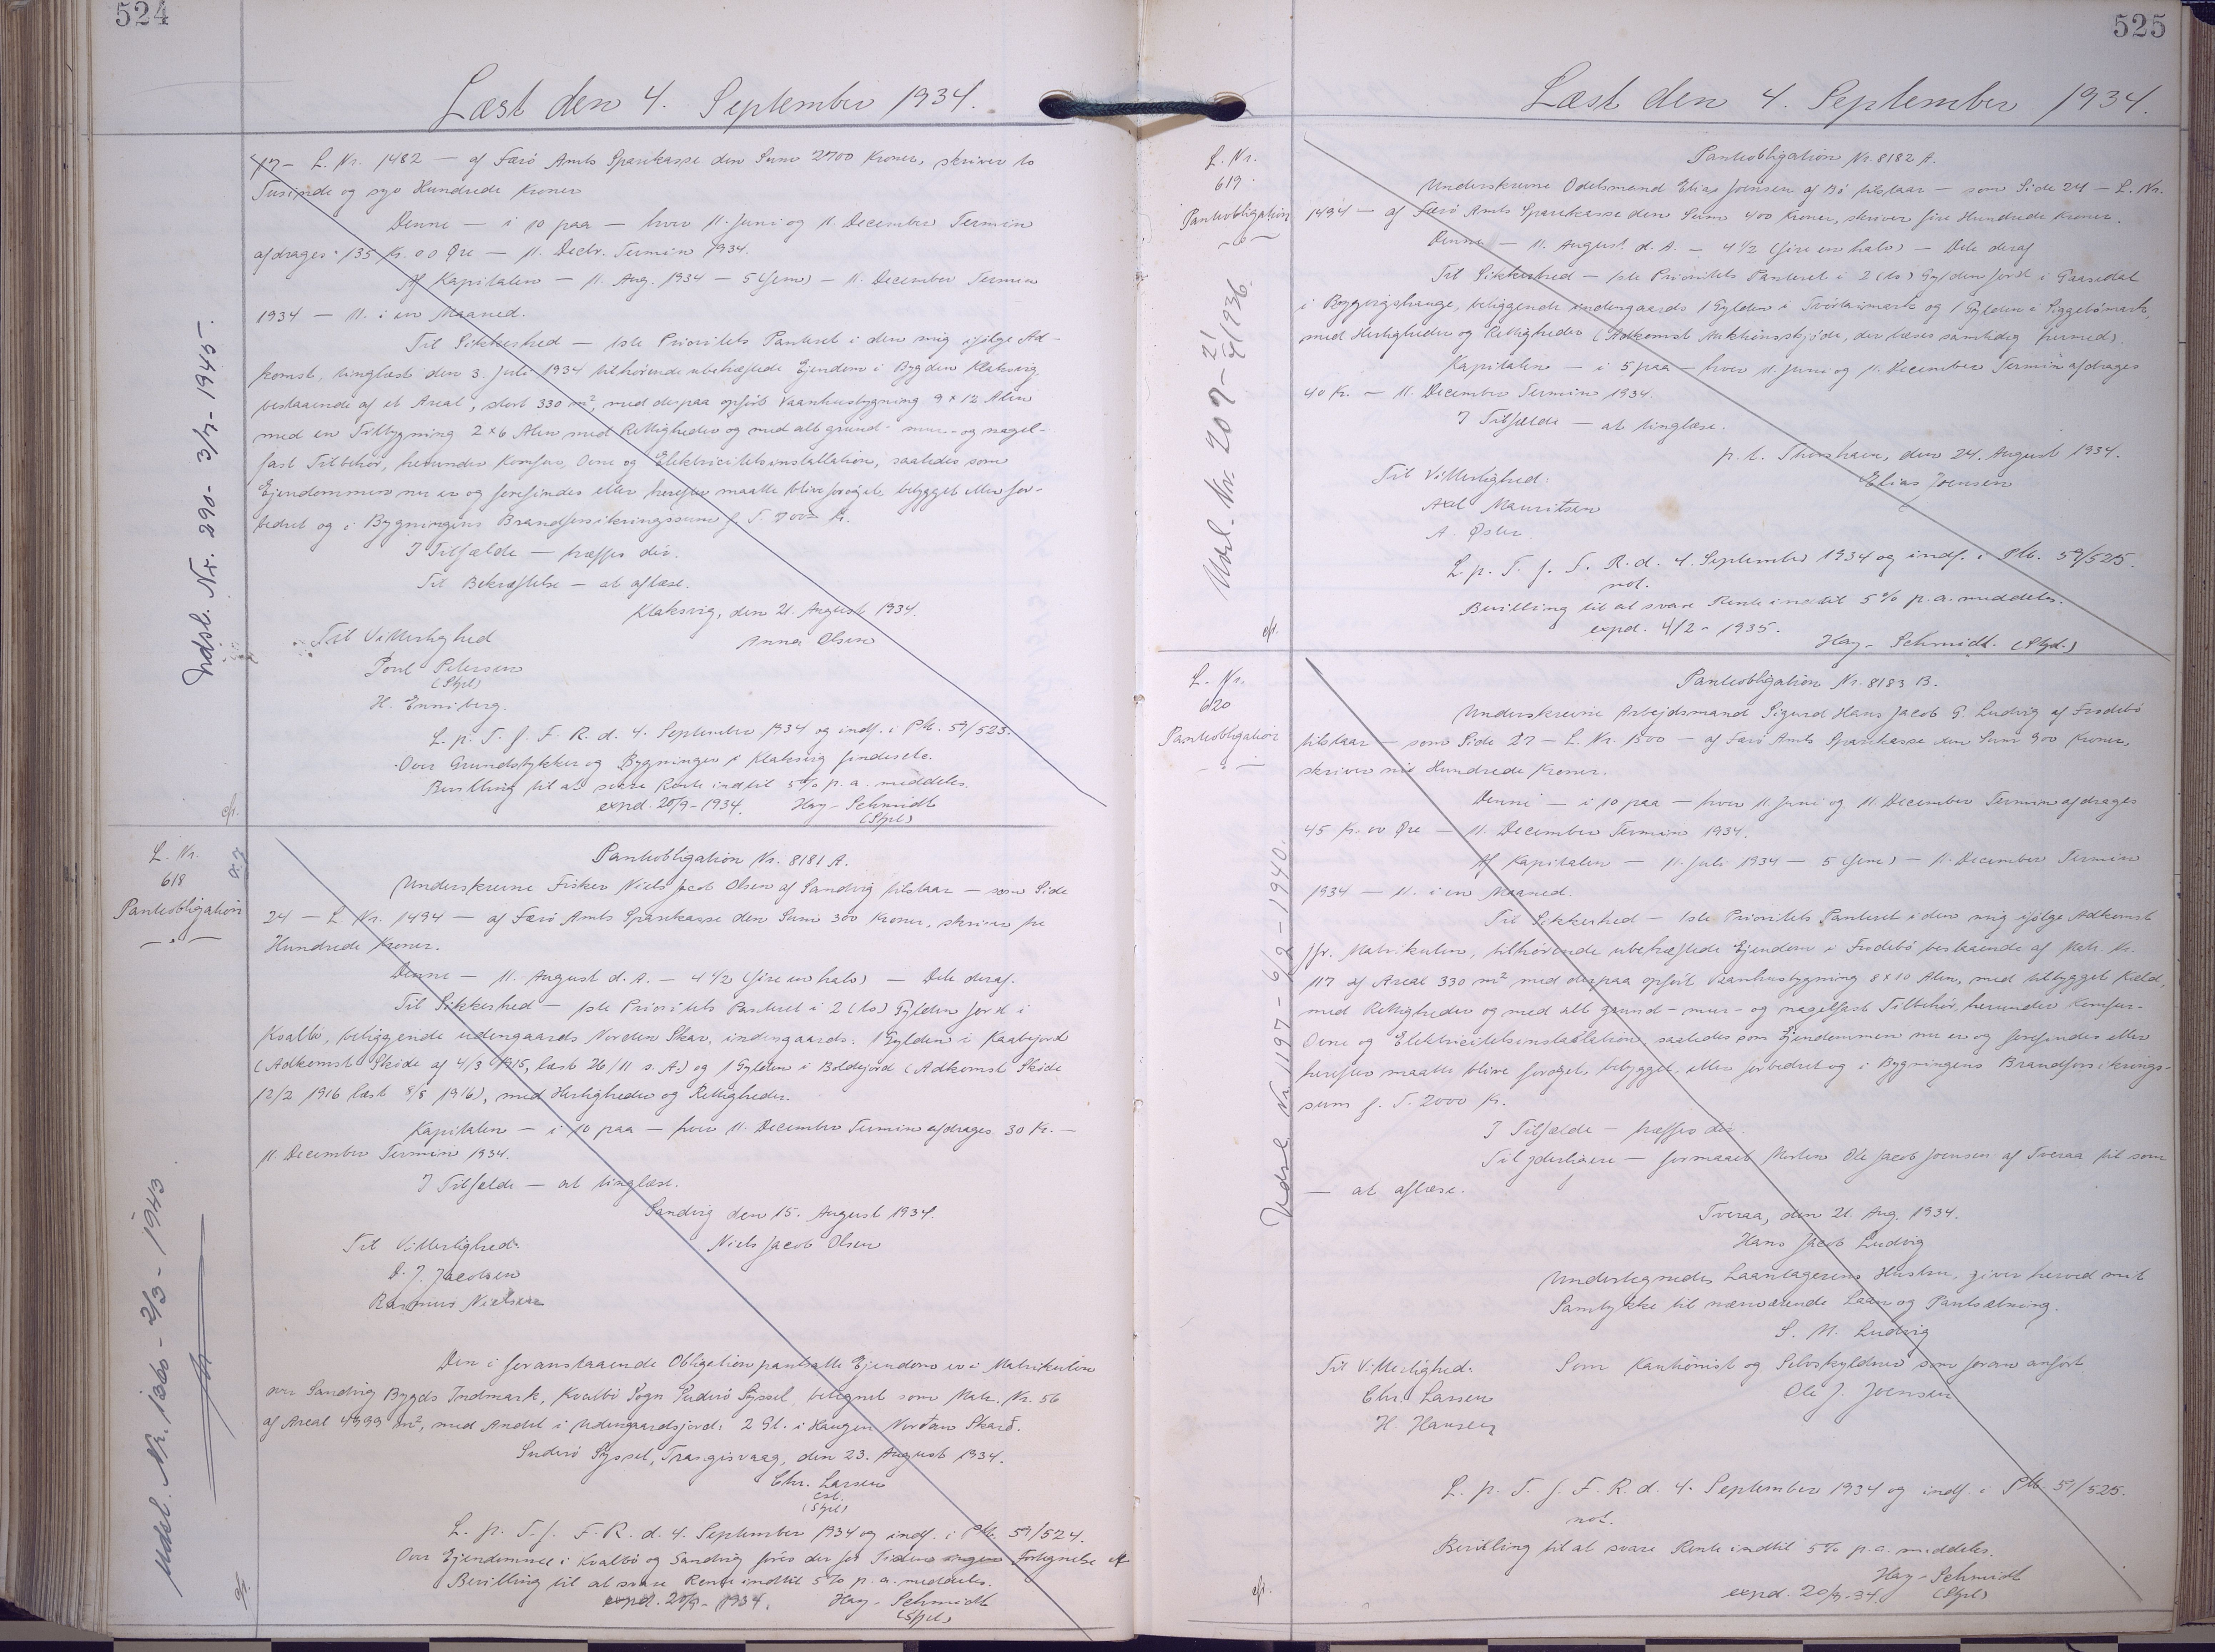 524
Læst den 4. September 1934.
L. Nr. 1482 — af Færö Amts Sparekasse den Sum 2700 Kroner, skriver to
Tusinde og syv Hundrede Kroner
Denne — i 10 paa — hver 11. Juni og 11. December Termin
afdrages 135 Kr. 00 Øre — 11. Decbr. Termin 1934.
Af Kapitalen — 11. Aug. 1934 — 5 (fem) — 11. December Termin
1934 — 11. i en Maaned.
Til Sikkerhed — 1ste Prioritets Panteret i den mig ifölge Ad-
komst, tinglæst den 3. Juli 1934 tilhörende ubehæftede Ejendom i Bygden Klaksvig
bestaaende af et Areal, stort 330 m², med derpaa opfört Vaanhusbygning 9 x 12 Alen
med en Tilbygning 2 x 6 Alen med Rettigheder og med alt grund- mur- og nagel-
fast Tilbehör, herunder Komfur, Ovne og Elektricitetsinstallation, saaledes som
Ejendommen nu er og forefindes eller herefter maatte blive forøget, bebygget eller for-
bedret og i Bygningens Brandforsikringssum f. T. 7000 Kr.
I Tilfælde — træffes der.
Til Bekræftelse — at aflæse.
Klaksvig, den 21. August 1934.
Til Vitterlighed
Anna Olsen
Poul Petersen
(Stpl)
H. Enniberg.
L. p. T. f. F. R. d. 4. September 1934 og indf. i Ptb. 59/523.
Over Grundstykker og Bygninger i Klaksvig findes ete.
Bevilling til at svare Rente indtil 5% p. a. meddeles.
expd. 20/9 - 1934. Hay-Schmidt
(Stpl)
Udsl. Nr. 290 - 3/7 - 1945.
L. Nr.
618
Pantobligation
Pantobligation Nr. 8181 A.
Underskrevne Fisker Niels Jacob Olsen af Sandvig tilstaar — som Side
24 — L. Nr. 1494 — af Færö Amts Sparekasse den Sum 300 Kroner, skriver tre
Hundrede Kroner.
Denne — 11. August d. A. — 4 1/2 (fire en halv) — Dele deraf.
Til Sikkerhed — 1ste Prioritets Panteret i 2 (to) Gylden Jord i
Kvalbö, beliggende udengaards Norden Skar, indengaards: 1 Gylden i
(Adkomst Skøde af 4/3 1915, læst 26/11 s. A.) og 1 Gylden i Boldejord (Adkomst Skøde
12/2 1916 læst 8/8 1916), med Herligheder og Rettigheder.
Kapitalen — i 10 paa — hver 11. December Termin afdrages 30 Kr. —
11. December Termin 1934.
I Tilfælde — at tinglæse.
Sandvig den 15. August 1934.
Til Vitterlighed:
Niels Jacob Olsen
D. J. Jacobsen
Rasmus Nielsen
Den i foranstaaende Obligation pantsatte Ejendom er i Matrikulen
over Sandvig Bygds Indmark, Kvalbö Sogn Suderö Syssel, betegnet som Matr. Nr. 56
af Areal 4999 m², med Andel i Udengaardsjord: 2 Gl. i Haugen Norðan Skarð.
Suderö Syssel, Trangisvaag, den 23. August 1934.
Chr. Larsen
cst.
(Stpl)
L. p. T. f. F. R. d. 4. September 1934 og indf. i Ptb. 59/524.
Over Ejendomme i Kvalbö og Sandvig föres der for Tiden ingen Fortegnelse
Bevilling til at svare Rente indtil 5% p. a. meddeles.
expd. 20/9 - 1934. Hay-Schmidt
(Stpl)
Udsl. Nr. 1360 - 2/3 - 1943
525
Læst den 4. September 1934.
L. Nr.
619
Pantobligation
Pantobligation Nr. 8182 A.
Underskrevne Odelsmand Elias Joensen af Bö tilstaar — som Side 24 — L. Nr.
1494 — af Færö Amts Sparekasse den Sum 400 Kroner, skriver fire Hundrede Kroner.
Denne — 11. August d. A. — 4 1/2 (fire en halv) — Dele deraf
Til Sikkerhed — 1ste Prioritets Panteret i 2 (to) Gylden Jord i Gaasedal
i Bygvigshauge, beliggende indengaards 1 Gylden i og 1 Gylden i
med Herligheder og Rettigheder (Adkomst Auktionsskjöde, der læses samtidig hermed).
Kapitalen — i 5 paa — hver 11. Juni og 11. December Termin afdrages
40 Kr. — 11. December Termin 1934.
I Tilfælde — at tinglæse.
p. t. Thorshavn, den 24. August 1934.
Til Vitterlighed:
Elias Joensen
Axel Mauritsen
A. Øster
L. p. T. f. F. R. d. 4. September 1934 og indf. i Ptb. 59/525.
not.
Bevilling til at svare Rente indtil 5% p. a. meddeles.
expd. 4/2 - 1935.
Hay-Schmidt. (Stpl.)
Udsl. Nr. 207 - 2/1 1936.
L. Nr.
620
Pantobligation
Pantobligation Nr. 8183 B.
Underskrevne Arbejdsmand Sigurd Hans Jacob G. Ludvig af Frodebö
tilstaar — som Side 27 — L. Nr. 1500 — af Færö Amts Sparekasse den Sum 900 Kroner,
skriver ni Hundrede Kroner.
Denne — i 10 paa — hver 11. Juni og 11. December Termin afdrages
45 Kr. 00 Øre — 11. December Termin 1934.
Af Kapitalen — 11. Juli 1934 — 5 (fem) — 11. December Termin
1934 — 11. i en Maaned.
Til Sikkerhed — 1ste Prioritets Panteret i den mig ifölge Adkomst
jfr. Matrikulen, tilhörende ubehæftede Ejendom i Frodebö bestaaende af Matr. Nr.
117 af Areal 330 m² med derpaa opfört Vaanhusbygning 8 x 10 Alen, med tilbygget Kæld,
med Rettigheder og med alt grund- mur- og nagelfast Tilbehör, herunder Komfur-
Ovne og Elektricitetsinstallation, saaledes som Ejendommen nu er og forefindes eller
herefter maatte blive forøget, bebygget, eller forbedret og i Bygningens Brandforsikrings-
sum f. T. 2000 Kr.
I Tilfælde — træffes der.
Til yderligere — formaaet Morten Ole Jacob Joensen af Tveraa til som
— at aflæse.
Tveraa, den 21. Aug. 1934.
Hans Jacob Ludvig
Undertegnede, Laantagerens Hustru, giver herved mit
Samtykke til nærværende Laan og Pantsætning.
S. M. Ludvig
Til Vitterlighed: Som Kautionist og Selvskyldner som foran anfört
Chr. Larsen
Ole J. Joensen
H. Hansen
L. p. T. f. F. R. d. 4. September 1934 og indf. i Ptb. 59/525.
not.
Bevilling til at svare Rente indtil 5% p. a. meddeles.
Hay-Schmidt
expd. 20/9-34. (Stpl)
Udsl. Nr. 1197 - 6/2 - 1940.